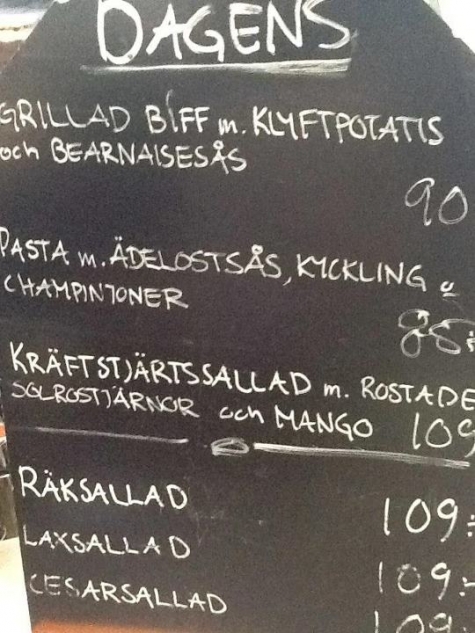 DAGENS
GRILLAD BIFF m. KLYFTPOTATIS
och BEARNAISESÅS
90
PASTA m. ÄDELOSTSÅS, KYCKLING o
CHAMPINJONER
85:
KRÄFTSTJÄRTSSALLAD m. ROSTADE
SOLROSTJÄRNOR och MANGO 109
RÄKSALLAD 109:-
LAXSALLAD 109:-
CESARSALLAD 109:-